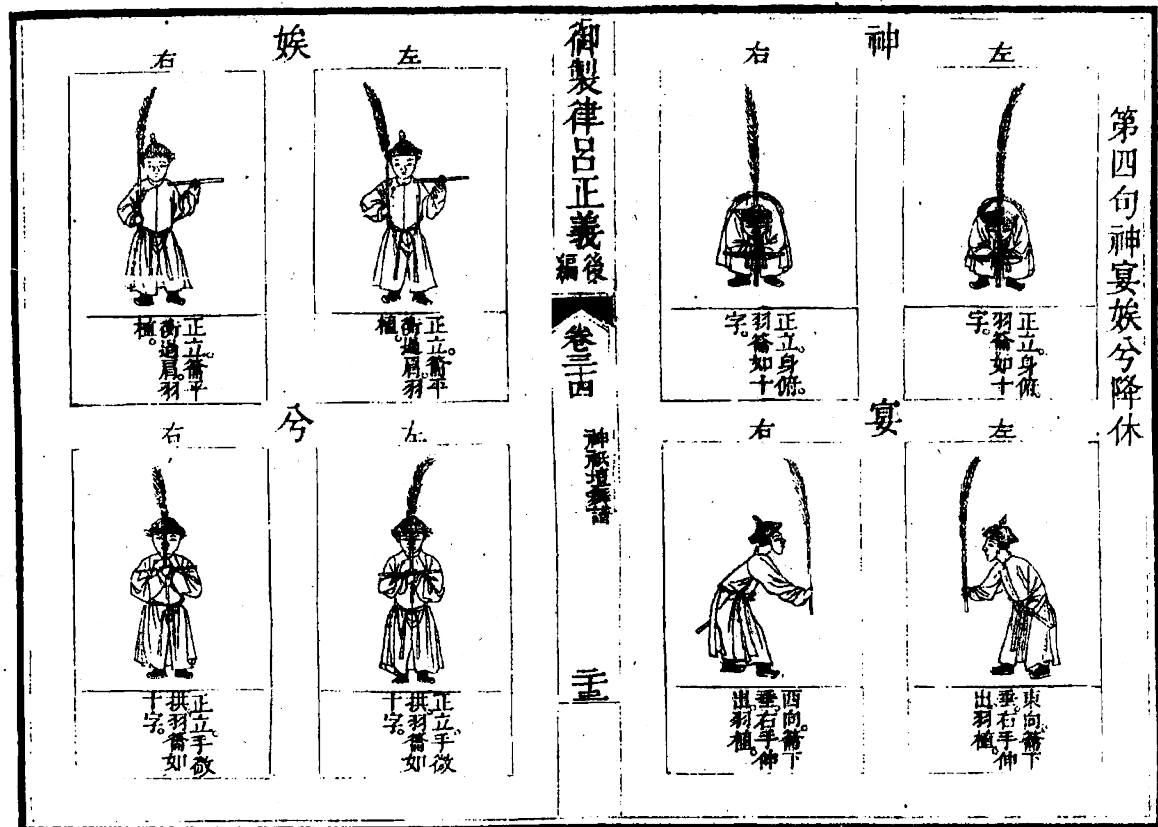 第四句神宴娭兮降休
神
左
正立身俯。
羽籥如十
字。
右
正立身俯。
羽籥如十
字。
宴
左
東向。籥下
垂。右手伸
出。羽植。
右
西向。籥下
垂。右手伸
出。羽植。
御製律呂正義後編
卷三十四
神祇壇舞譜
娭
左
正立。籥平
衡過肩。羽
植。
右
正立。籥平
衡過肩。羽
植。
兮
左
正立。手微
拱。羽籥如
十字。
右
正立。手微
拱。羽籥如
十字。